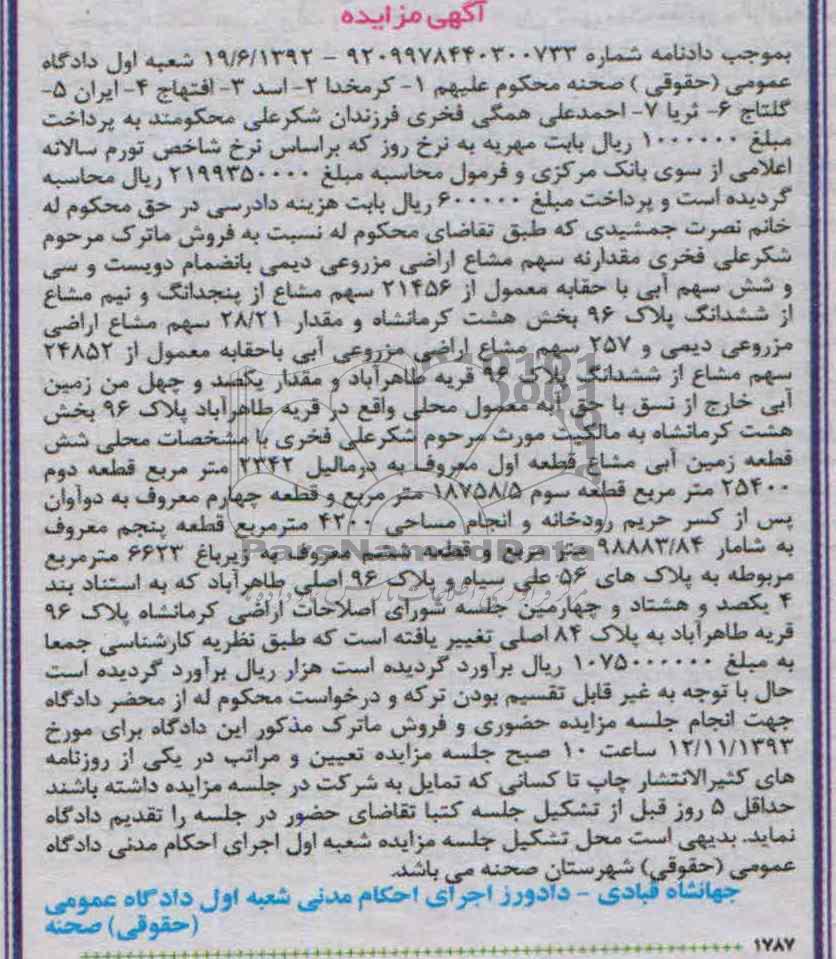 آگهی مزایده
بموجب دادنامه شماره ۹۲۰۹۹۷۸۴۴۰۳۰۰۷۳۳ - ۱۹/۶/۱۳۹۲ شعبه اول دادگاه
عمومی (حقوقی ) صحنه محکوم علیهم ۱- کرمخدا ۲- اسد ۳- افتهاج ۴- ایران ۵-
گلتاج ۶- ثریا ۷- احمدعلی همگی فخری فرزندان شکرعلی محکومند به پرداخت
مبلغ ۱۰۰۰۰۰۰ ریال بابت مهریه به نرخ روز که براساس نرخ شاخص تورم سالانه
اعلامی از سوی بانک مرکزی و فرمول محاسبه مبلغ ۲۱۹۹۳۵۰۰۰۰ ریال محاسبه
گردیده است و پرداخت مبلغ ۶۰۰۰۰۰ ریال بابت هزینه دادرسی در حق محکوم له
خانم نصرت جمشیدی که طبق تقاضای محکوم له نسبت به فروش ماترک مرحوم
شکرعلی فخری مقدارنه سهم مشاع اراضی مزروعی دیمی بانضمام دویست و سی
و شش سهم آبی با حقابه معمول از ۲۱۴۵۶ سهم مشاع از پنجدانگ و نیم مشاع
از ششدانگ پلاک ۹۶ بخش هشت کرمانشاه و مقدار ۲۸/۲۱ سهم مشاع اراضی
مزروعی دیمی و ۲۵۷ سهم مشاع اراضی مزروعی آبی باحقابه معمول از ۲۴۸۵۲
سهم مشاع از ششدانگ پلاک ۹۶ قریه طاهرآباد و مقدار یکصد و چهل من زمین
آبی خارج از نسق با حق آبه معمول محلی واقع در قریه طاهرآباد پلاک ۹۶ بخش
هشت کرمانشاه به مالکیت مورث مرحوم شکرعلی فخری با مشخصات محلی شش
قطعه زمین آبی مشاع قطعه اول معروف به درمالیل ۲۳۴۲ متر مربع قطعه دوم
۲۵۴۰۰ متر مربع قطعه سوم ۱۸۷۵۸/۵ متر مربع و قطعه چهارم معروف به دوآوان
پس از کسر حریم رودخانه و انجام مساحی ۴۲۰۰ مترمربع قطعه پنجم معروف
به شامار ۹۸۸۸۳/۸۴ متر مربع و قطعه ششم معروف به زیرباغ ۶۶۲۳ مترمربع
مربوطه به پلاک های ۵۶ علی سیاه و پلاک ۹۶ اصلی طاهرآباد که به استناد بند
۴ یکصد و هشتاد و چهارمین جلسه شورای اصلاحات اراضی کرمانشاه پلاک ۹۶
قریه طاهرآباد به پلاک ۸۴ اصلی تغییر یافته است که طبق نظریه کارشناسی جمعا
به مبلغ ۱۰۷۵۰۰۰۰۰۰ ریال برآورد گردیده است هزار ریال برآورد گردیده است
حال با توجه به غیر قابل تقسیم بودن ترکه و درخواست محکوم له از محضر دادگاه
جهت انجام جلسه مزایده حضوری و فروش ماترک مذکور این دادگاه برای مورخ
۱۲/۱۱/۱۳۹۳ ساعت ۱۰ صبح جلسه مزایده تعیین و مراتب در یکی از روزنامه
های کثیرالانتشار چاپ تا کسانی که تمایل به شرکت در جلسه مزایده داشته باشند
حداقل ۵ روز قبل از تشکیل جلسه کتبا تقاضای حضور در جلسه را تقدیم دادگاه
نماید. بدیهی است محل تشکیل جلسه مزایده شعبه اول اجرای احکام مدنی دادگاه
عمومی (حقوقی) شهرستان صحنه می باشد.
جهانشاه قبادی - دادورز اجرای احکام مدنی شعبه اول دادگاه عمومی
(حقوقی) صحنه
۱۷۸۷
ParsNamadData